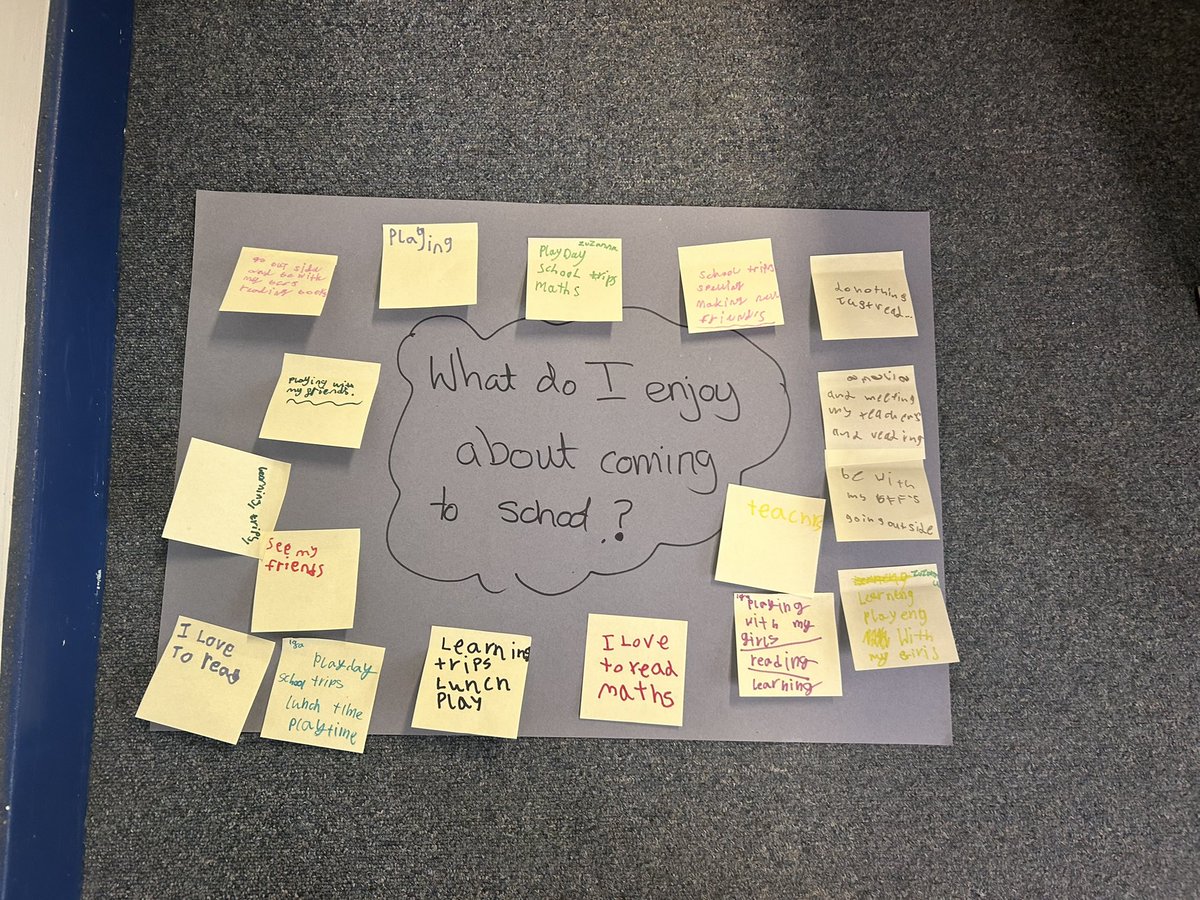 What do I enjoy
about coming
to school?
go out side
and be with
my
reading books
Playing
zuzanna
PlayDay
School trips
Maths
School trips
Making
friends
do nothing
Just read...
Playing with
my friends.
and meeting
my teachers
and reading
be with
my BFF'S
going outside
trips,
See my
friends
teache
I Love
To read
iga
playday
school trips
lunch time
playtime
Learning
trips
Lunch
Play
I Love
to read
maths
iga
Playing
with my
girls
reading
learning
Learneng
playeng
With
my Girls